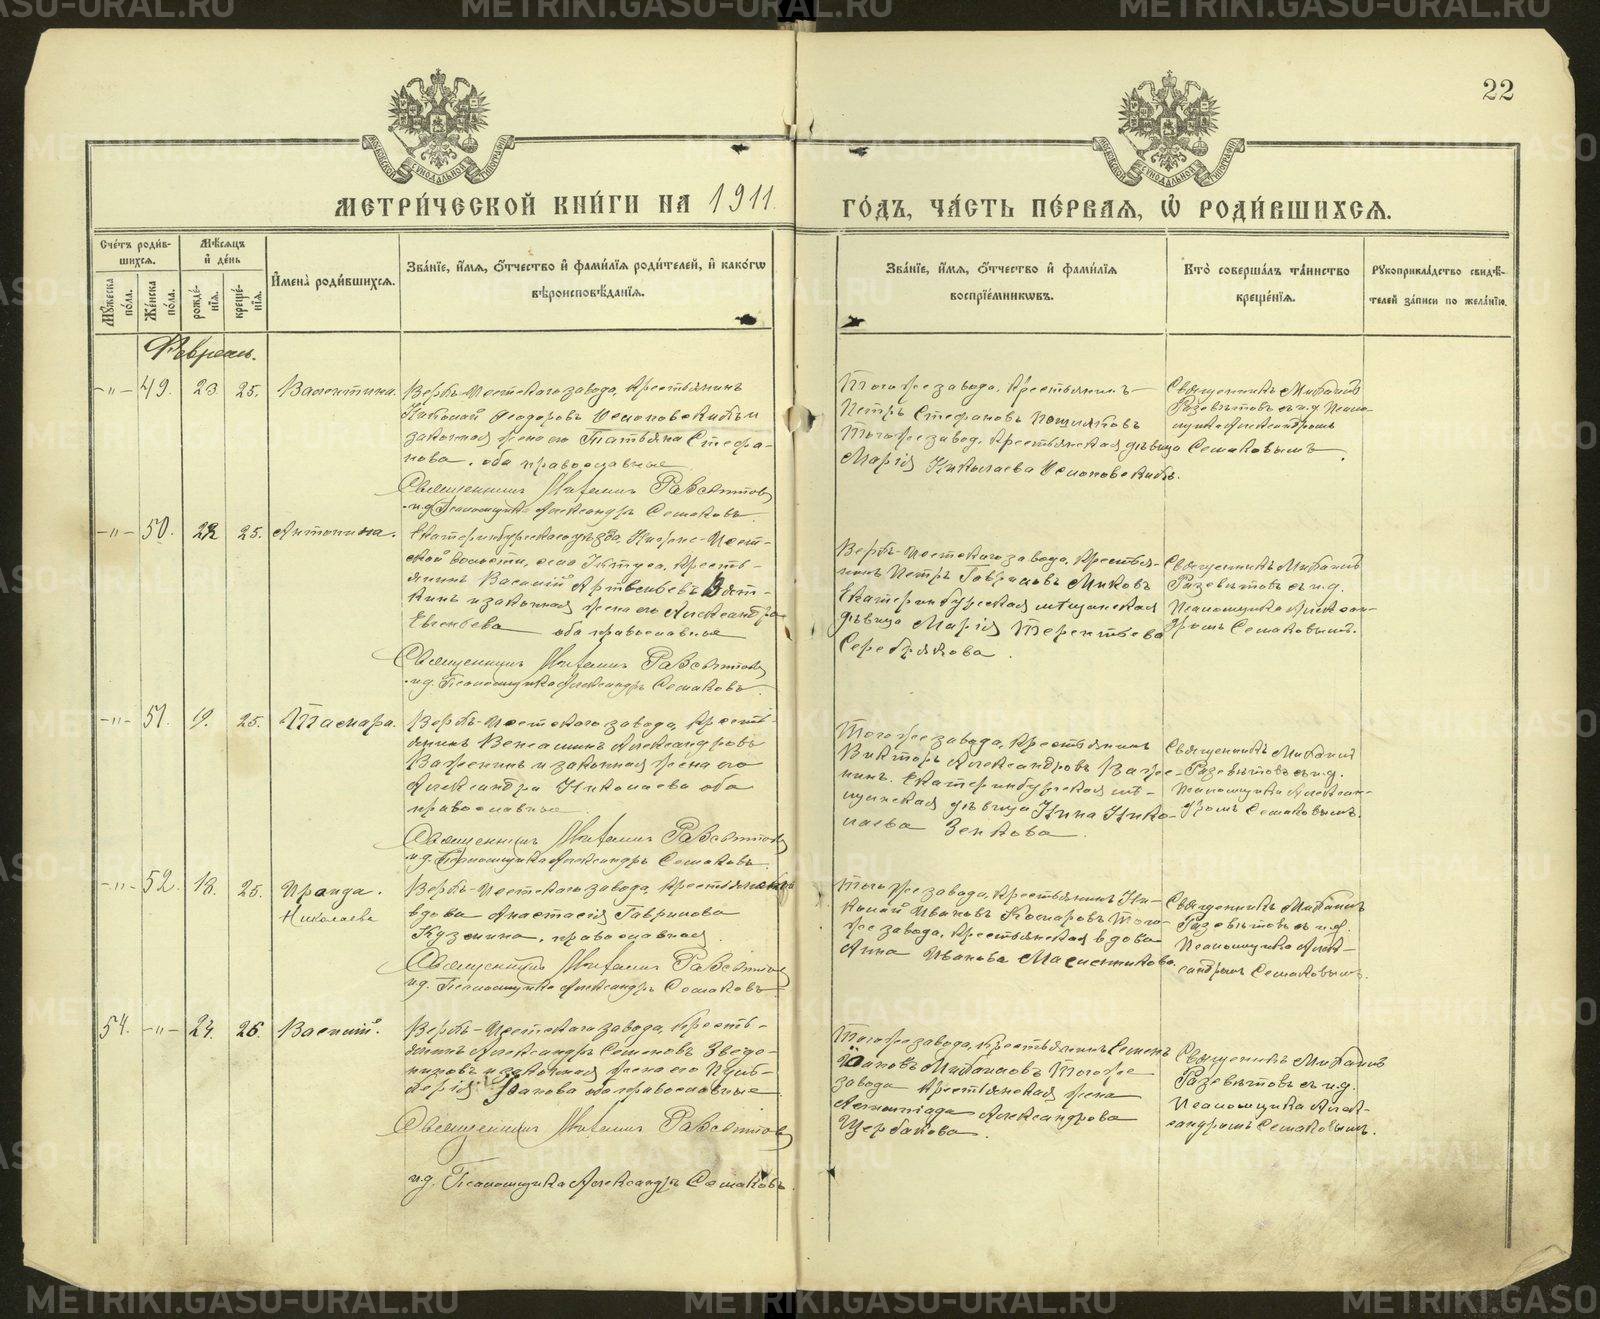 22
МЕТРИ́ЧЕСКОЙ КНИ́ГИ НА 1911
ГО́ДЪ, ЧА́СТЬ ПЕ́РВАЯ, Ѡ҆ РОДИ́ВШИХСЯ.
Сче́тъ роди́в-
шихся.
Мꙋ́жеска по́ла.
Же́нска по́ла.
Мѣ́сяцъ
и҆ де́нь
рожде́-
нїя.
креще́-
нїя.
И҆мена̀ роди́вшихся.
Зва́нїе, и҆́мя, ѻ҆́тчество и҆ фами́лїя роди́телей, и҆ како́гѡ
вѣроисповѣ́данїя.
Зва́нїе, и҆́мя, ѻ҆́тчество и҆ фами́лїя
воспрїе́мникѡвъ.
Кто̀ соверша́лъ та́инство
креще́нїя.
Рꙋкоприкла́дство свидѣ́-
телей за́писи по жела́нїю.
Февраль.
-"- 49. 23 25. Валентина.
Верхъ-Исетскаго завода, крестьянинъ
Николай Феодоровъ
законная жена его Татьяна Стефа-
нова, оба православные
Священникъ
и.д. Псаломщика Александръ Семаковъ.
Того же завода, крестьянинъ
Петръ Стефановъ
Того же завод. крестьянская дѣвица
Марія Николаева
Священникъ Михаилъ
съ и.д. Псало-
мщика Александромъ
Семаковымъ.
-"- 50. 22 25. Антонина.
Екатеринбургскаго уѣзда, Нижне-Исет-
ской волости, села кресть-
янинъ Василій Артемьевъ Вят-
кинъ и законная жена его Александра
Евгеньева оба православные
Священникъ
и.д. Псаломщика Александръ Семаковъ.
Верхъ-Исетскаго завода, крестья-
нинъ Петръ Гавриловъ
Екатеринбургская мѣщанская
дѣвица Марія Терентьева
Серебрякова.
Священникъ Михаилъ
съ и.д.
Псаломщика Алексан-
дромъ Семаковымъ.
-"- 51. 19. 25. Тамара.
Верхъ-Исетскаго завода, кресть-
янинъ Веніаминъ Александровъ
Важенинъ и законная жена его
Александра Николаева оба
православные
Священникъ
и.д. Псаломщика Александръ Семаковъ.
Того же завода, крестьянинъ
Викторъ Александровъ Важе-
нинъ. Екатеринбургская мѣ-
щанская дѣвица Нина Нико-
лаева Зенкова.
Священникъ Михаилъ
съ и.д.
Псаломщика Алексан-
дромъ Семаковымъ.
-"- 52. 18. 25. Ираида.
Николаева
Верхъ-Исетскаго завода, крестьянская
вдова Анастасія Гаврилова
Кузмина, православная
Священникъ
и.д. Псаломщика Александръ Семаковъ.
Того же завода, крестьянинъ Ни-
колай Ивановъ Комаровъ Того
же завода, крестьянская вдова
Анна Иванова Масленникова.
Священникъ Михаилъ
съ и.д.
Псаломщика Алек-
сандромъ Семаковымъ.
54. -"- 24. 26. Василій.
Верхъ-Исетскаго завода, кресть-
янинъ Александръ Семеновъ
и законная жена его
Иванова оба православные
Священникъ
и.д. Псаломщика Александръ Семаковъ.
Того же завода, крестьянинъ Семенъ
Михаиловъ Того же
завода крестьянская жена
Александрова
Щербакова.
Священникъ Михаилъ
съ и.д.
Псаломщика Алек-
сандромъ Семаковымъ.
METRIKI.GASO-URAL.RU